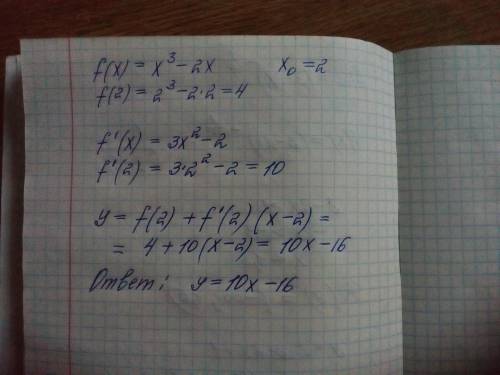 f(x) = x³ - 2x x₀ = 2
f(2) = 2³ - 2·2 = 4
f'(x) = 3x² - 2
f'(2) = 3·2² - 2 = 10
y = f(2) + f'(2) (x-2) =
= 4 + 10(x-2) = 10x - 16
Ответ: y = 10x - 16